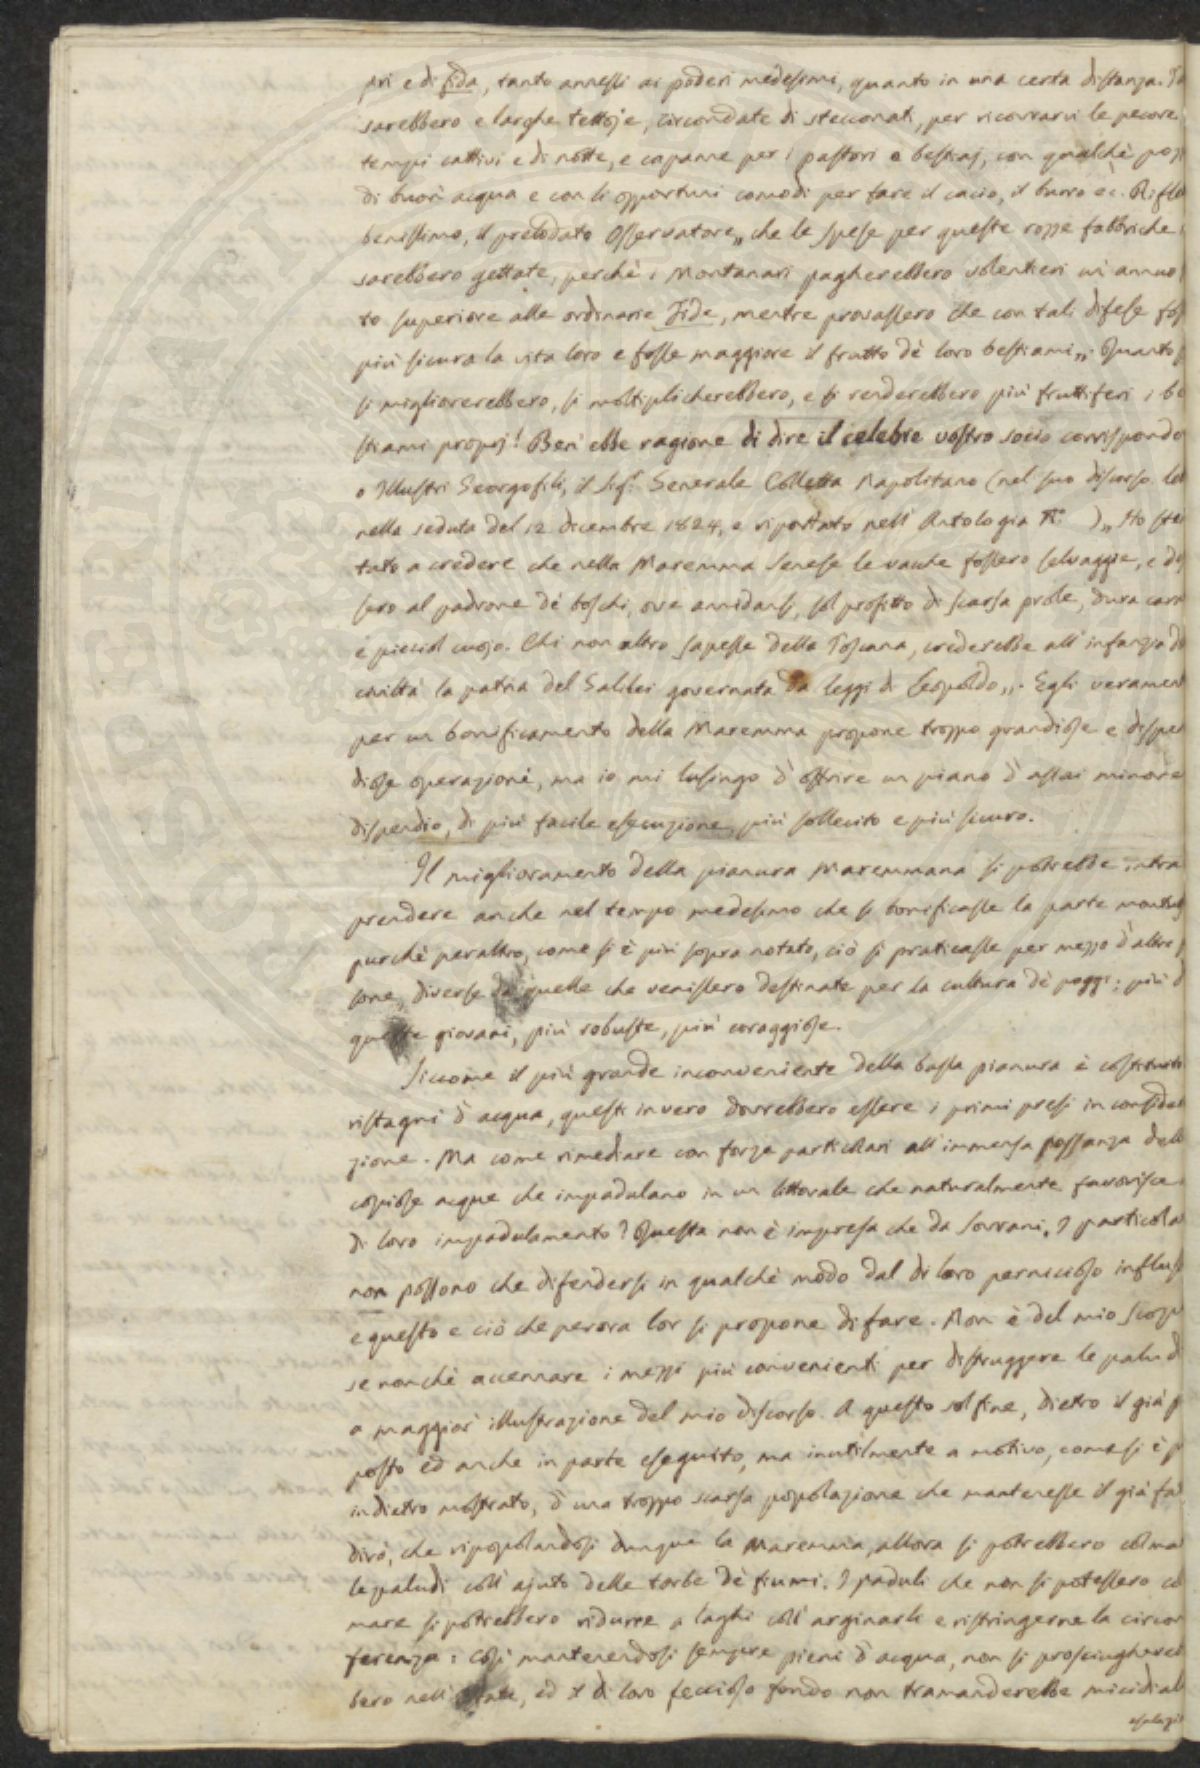 pri e di fida, tanto annessi ai poderi medesimi, quanto in una certa distanza.
sarebbero e larghe tettoje, circondate di steccionati, per ricovrarvi le pecore
tempi cattivi e di notte, e capanne per i pastori e bestiaj, con qualchè
di buon' acqua e con li opportuni comodi per fare il cacio, il burro ec. Rifle
benissimo, il prelodato Osservatore „ che le spese per queste rozze fabbriche
sarebbero gettate, perchè i Montanari pagherebbero volentieri un' annuo
to superiore alle ordinarie Fide, mentre provassero che con tali difese fos
più sicura la vita loro e fosse maggiore il frutto dè loro bestiami „. Quanto
si migliorerebbero, si moltiplicherebbero, e si renderebbero più fruttiferi i be
stiami proprj! Ben' ebbe ragione di dire il celebre vostro socio corrisponde
o Illustri Georgofili, il Sigr. Generale Colletta Napolitano (nel suo discorso let
nella seduta del 12 dicembre 1824, e riportato nell' Antologia No. ) „ Ho sten
tato a credere che nella Maremma Senese le vacche fossero selvaggie, e de
sero al padrone dè boschi, ove annidansi, sol profitto di scarsa prole, dura carn
e picciol cuojo. Chi non altro sapesse della Toscana, crederebbe all' infanzia di
civiltà la patria del Galilei governata da leggi di Leopoldo „. Egli verament
per un bonificamento della Maremma propone troppo grandiose e dispen
diose operazioni, ma io mi lusingo d' offrire un piano d' assai minore
dispendio, di più facile esecuzione, più sollecito e più sicuro.
Il miglioramento della pianura Maremmana si potrebbe intra
prendere anche nel tempo medesimo che si bonificasse la parte montuos
purchè peraltro, come si è più sopra notato, ciò si praticasse per mezzo d' altre p
sone, diverse da quelle che venissero destinate per la cultura dè poggi; più d
queste giovani, più robuste, più coraggiose.
Siccome il più grande inconveniente della bassa pianura è costituito
ristagni d' acqua, questi invero dovrebbero essere i primi presi in consider
zione. Ma come rimediare con forze particolari all' immensa possanza delle
copiose acque che impadulano in un littorale che naturalmente favorisce
di loro impadulamento? Questa non è impresa che da Sovrani. I particola
non possono che difendersi in qualchè modo dal di loro pernicioso influss
e questo e ciò che perora lor si propone di fare. Non è del mio scop
se nonchè accennare i mezzi più convenienti per distruggere le palud
a maggior' illustrazione del mio discorso. A questo sol fine, dietro il già p
posto ed anche in parte eseguito, ma inutilmente a motivo, come si è p
indietro mostrato, d' una troppo scarsa popolazione che mantenesse il già fa
dirò, che ripopolandosi dunque la Maremma, allora si potrebbero colma
le paludi coll' ajuto delle torbe dè fiumi. I paduli che non si potessero co
mare si potrebbero ridurre a laghi coll' arginarli e ristringerne la circon
ferenza: così mantenendosi sempre pieni d' acqua, non si prosciugherei
bero nell' Estate, ed il di loro feccioso fondo non tramanderebbe micidial
esalazio